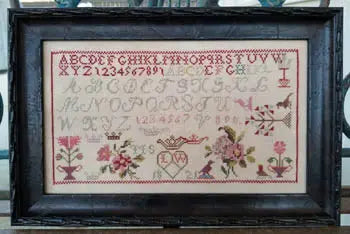 ABCDEFGHIKLMNOPQRSTUVW
XYZ1234567891ABCDEFGHIKL
ABCDEFGHIKL
MNOPQRSTU
WXYZ 1234567 890
LW
1821